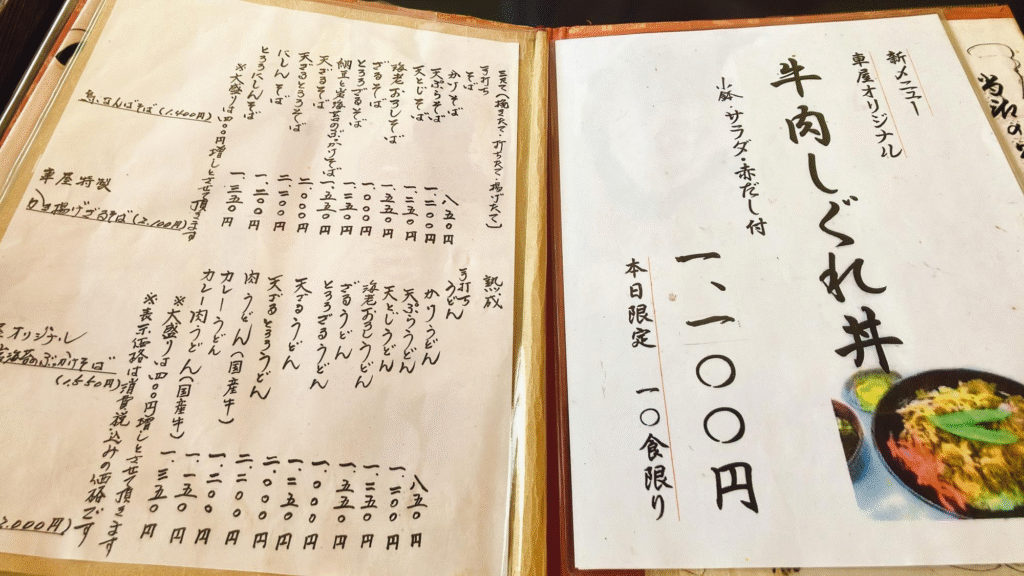 新メニュー
車屋オリジナル
牛肉しぐれ丼
小鉢・サラダ・赤だし付
一、一〇〇円
本日限定 一〇食限り
三たて(挽きたて・打ちたて・揚げたて)
手打ち
そば
かけそば 八五〇円
天ぷらそば 一、二〇〇円
天とじそば 一、二五〇円
海老おろしそば 一、五五〇円
ざるそば 一、〇〇〇円
とろろざるそば 一、二五〇円
納豆と岩海苔のぶっかけそば 一、五五〇円
天ざるそば
天ざるとろろそば
にしんそば 一、二〇〇円
とろろにしんそば 一、五五〇円
※大盛りは四〇〇円増しとさせて頂きます
なんばそば(1,400円)
車屋特製
かき揚げざるそば(2,100円)
熟成
手打ち
うどん
かけうどん 八五〇円
天ぷらうどん 一、二〇〇円
天とじうどん 一、二五〇円
海老おろしうどん 一、五五〇円
ざるうどん
とろろざるうどん
天ざるうどん
天ざるとろろうどん
肉うどん(国産牛)
カレーうどん
カレー肉うどん(国産牛)
※大盛りは四〇〇円増しとさせて頂きます
※表示価格は消費税込みの価格です
オリジナル
岩海苔のぶっかけそば
(1,550円)
2,000円)